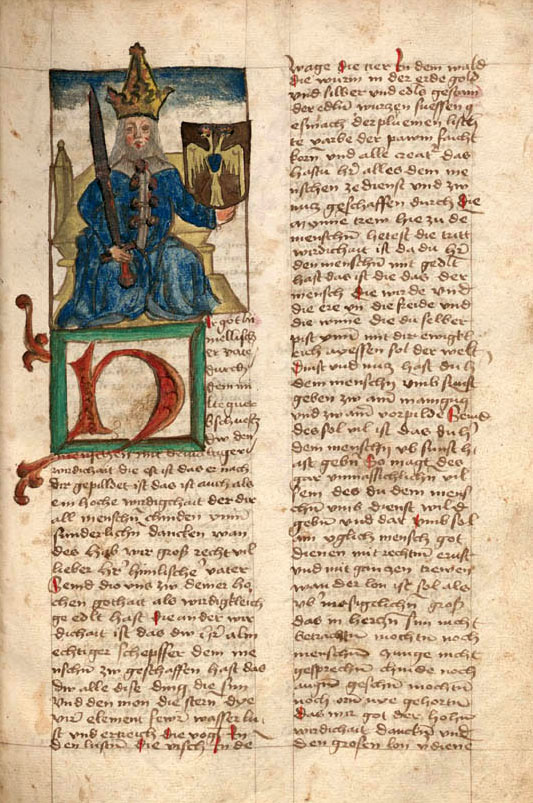 H
er got hi
mellisch
er vate
durch
dem in
bschueff
dw den
menschen mit
wirdichait die erst ist das er nach
dir gepildet ist das ist auch als
ein hoche wirdigchait der dir
all menschn chinden vnnn
sunderlichn dancken wan
des hab wir groß recht vil
lieber hr himlischr vater
Seind dw vns zw deiner ho
chen gothait als wirdigkleich
ge edlt hast Die ander wir
dichait ist das dw hr alm
echtiger schepffer dem me
nschn zw geschaffen hast das
dir alle dise ding die sun
vnd den mon die stern dye
vir element fewr wasser lu
ft vnd ertreich Die vogl In
den lufften Die visch In de
wage Die tier In dem wald
Die wurm in der erde gold
vnd silber vnd edlo gestain
der edln wurtzen suessen g
esmach der pluemen liech
te varbe der pawm frucht
korn vnd alle creatr das
hastu hr alles dem me
nschen ze dienst vnd zw
nutz geschaffen durch Die
mynne trew hie zu de
menschn hetest die tritt
wirdichait ist da du hr
den menschn mit gedlt
hast das ist die das der
mensch Die wirde vnd
die ere vn die freide vnd
die wune die du selber
pist vnn mit dir ewigkl
eich wessen sol der welt
Dinst vnd nutz hast du hr
dem menschn vmb sunst
geben zw aim
vnd zw aim vorpilde Seind
des sol vil ist das du hr
dem menschn vb sunst h
ast gebn So magt des
gar vnmassichlichn vil
sein des du dem mens
chn vmb dienst wild
gebn vnd dar vmb sol
ain yglich mensch got
dienen mit rechtm ernst
vnd mit gantzen trewen
wan der lon ist sol als
vbr mesigclichn groß
das in hertzn sin nicht
betrachtn mochtn noch
menschn zunge nicht
gesprechn chunde noch
augn gesehn mochtn
noch orn nye gehortn
Das wir got der hohn
wirdichait danckn vnd
den grosen lon vdiene